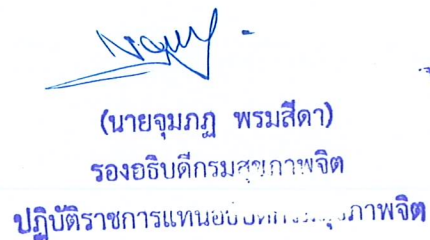 (นายจุมภฏ พรมสีดา)
รองอธิบดีกรมสุขภาพจิต
ปฏิบัติราชการแทนอธิบดีกรมสุขภาพจิต